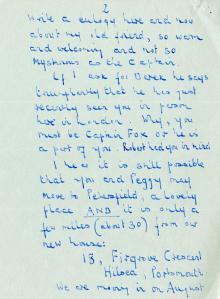 2
Write a eulogy here and now
about my old friend, so warm
and welcoming and not so
mysterious as the Captain.
If I ask for Derek he says
triumphantly that he has just
recently seen you in person
here in London. Why, you
must be Captain Fox or he is
a part of you. Robert had you in mind
I hear it is still possible
that you and Peggy may
move to Petersfield, a lovely
place AND it is only a
few miles (about 30) from our
new house:
13, Firgrove Crescent
Hilsea, Portsmouth
We are moving in on August